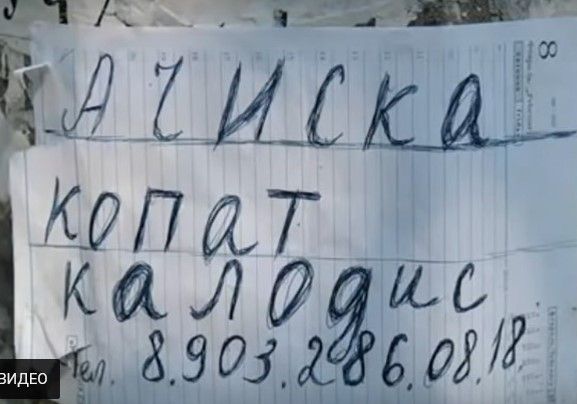 8
Ачиска
копат
калодис
Тел. 8.903.286.08.18
ВИДЕО